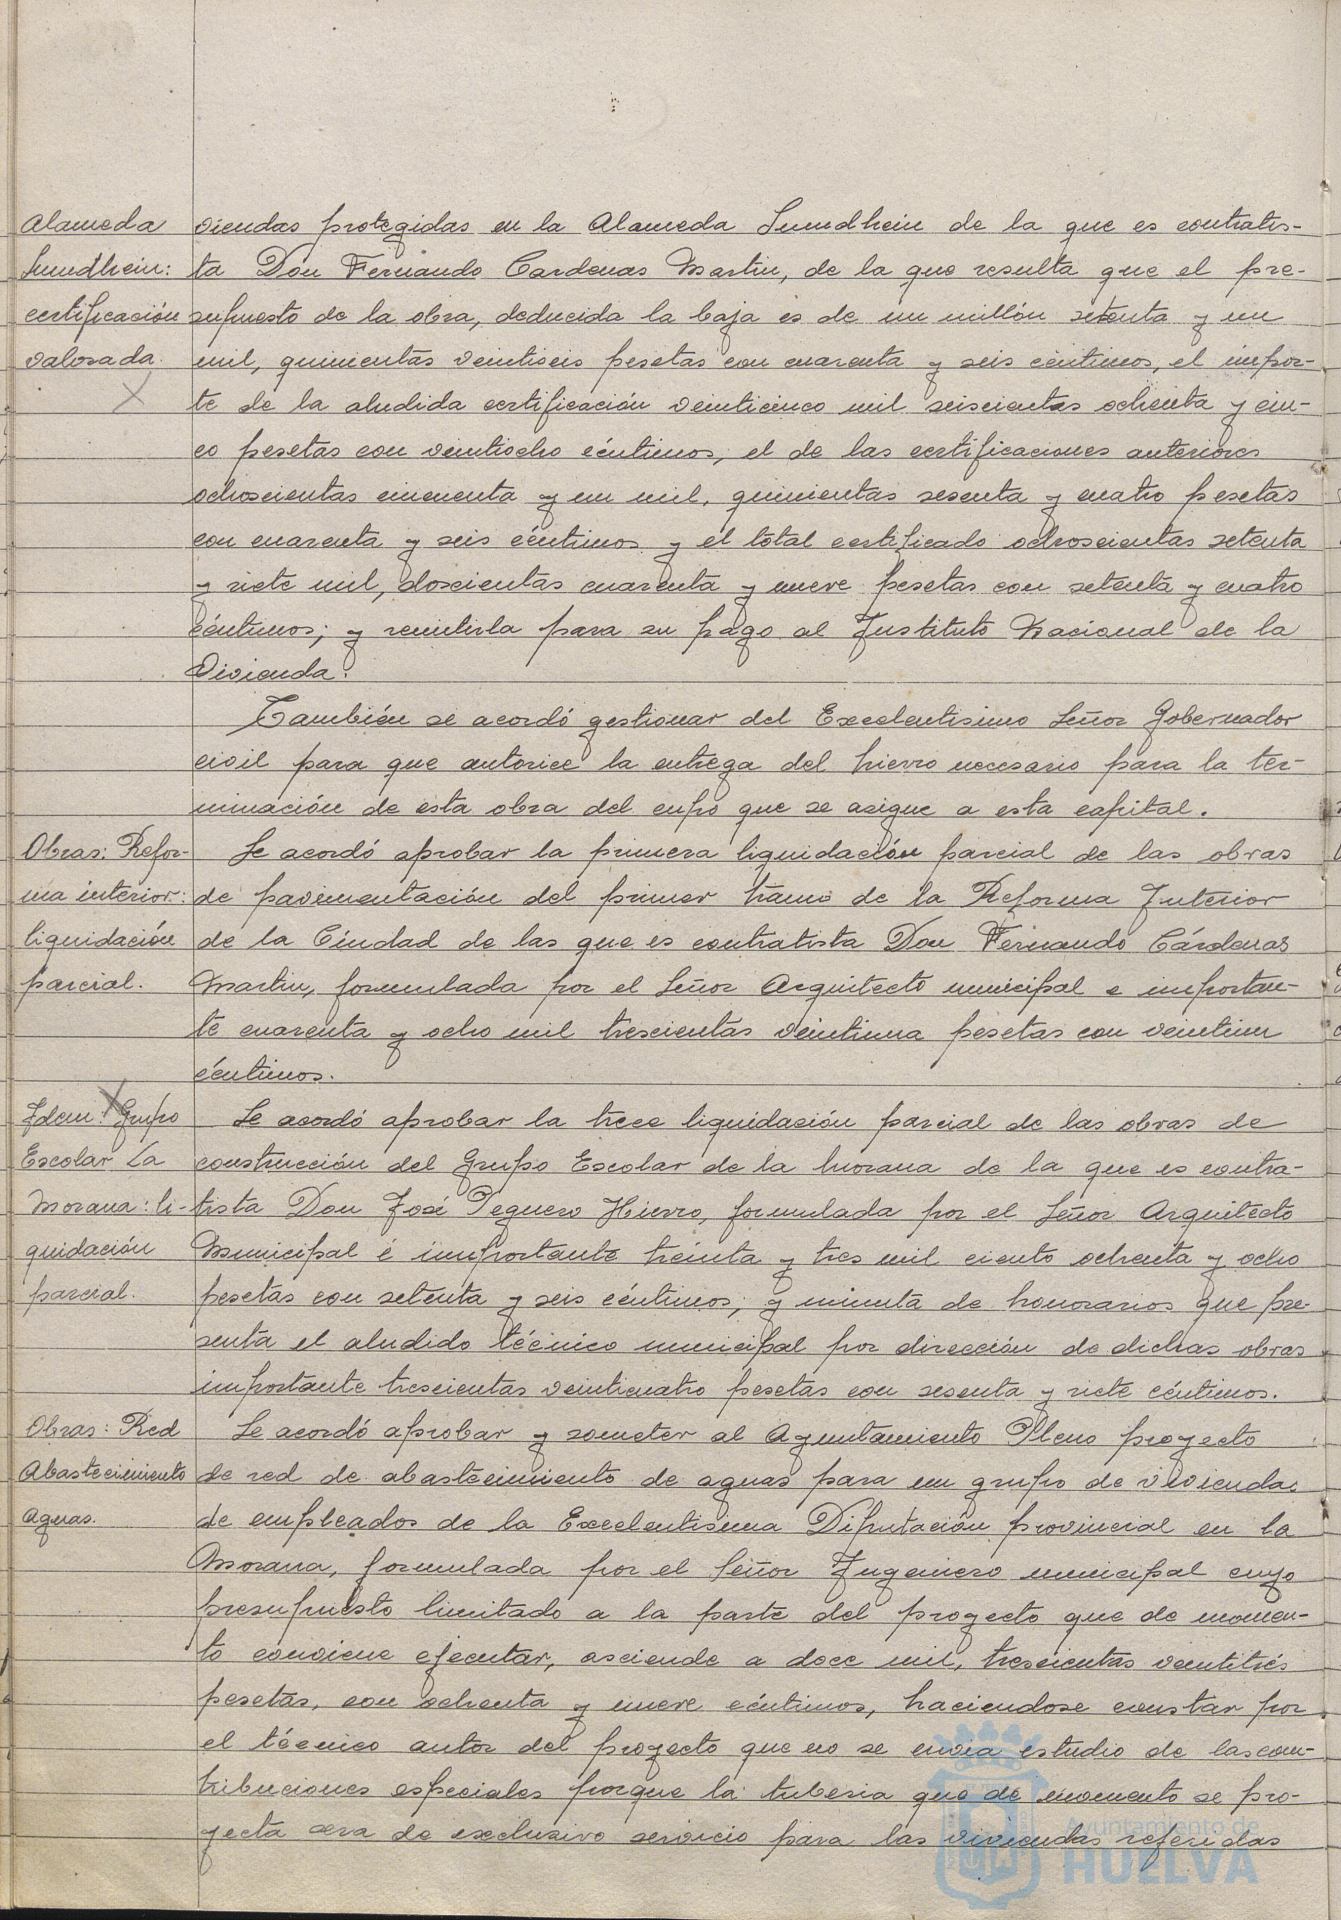 Alameda
Sundhein:
certificación
valorada.
viendas protegidas en la Alameda Sundhein de la que es contratis-
ta Don Fernando Cardenas Martin, de la que resulta que el pre-
supuesto de la obra, deducida la baja es de un millón setenta y un
mil, quinientas veintiseis pesetas con cuarenta y seis céntimos, el impor-
te de la aludida certificación veinticinco mil seiscientas ochenta y cin-
co pesetas con veintiocho céntimos, el de las certificaciones anteriores
ochoscientas cincuenta y un mil, quinientas sesenta y cuatro pesetas
con cuarenta y seis céntimos y el total certificado ochoscientas setenta
y siete mil, doscientas cuarenta y nueve pesetas con setenta y cuatro
céntimos; y remitirla para su pago al Instituto Nacional de la
Vivienda.
También se acordó gestionar del Excelentisimo Señor Gobernador
civil para que autorice la entrega del hierro necesario para la ter-
minación de esta obra del cupo que se asigue a esta capital.
Obras: Refor-
ma interior:
liquidación
parcial.
Se acordó aprobar la primera liquidación parcial de las obras
de pavimentación del primer tramo de la Reforma Interior
de la Ciudad de las que es contratista Don Fernando Cárdenas
Martin, formulada por el Señor Arquitecto municipal e importan-
te cuarenta y ocho mil trescientas veintiuna pesetas con veintiun
céntimos.
Idem: Grupo
Escolar La
Morana: li-
quidación
parcial.
Se acordó aprobar la trece liquidación parcial de las obras de
construcción del Grupo Escolar de la Morana de la que es contra-
tista Don José Peguero Hierro, formulada por el Señor Arquitecto
Municipal é importante treinta y tres mil ciento ochenta y ocho
pesetas con setenta y seis céntimos; y minuta de honorarios que pre-
senta el aludido técnico municipal por dirección de dichas obras
importante trescientas veinticuatro pesetas con sesenta y siete céntimos.
Obras: Red
Abastecimiento
aguas.
Se acordó aprobar y someter al Ayuntamiento Pleno proyecto
de red de abastecimiento de aguas para un grupo de viviendas
de empleados de la Excelentisima Diputación provincial en la
Morana, formulada por el Señor Ingeniero municipal cuyo
presupuesto limitado a la parte del proyecto que de momen-
to conviene ejecutar, asciende a doce mil, trescientas veintitrés
pesetas, con ochenta y nueve céntimos, haciendose constar por
el técnico autor del proyecto que no se envia estudio de las con-
tribuciones especiales porque la tuberia que de momento se pro-
yecta sera de exclusivo servicio para las viviendas referidas
Ayuntamiento de
HUELVA